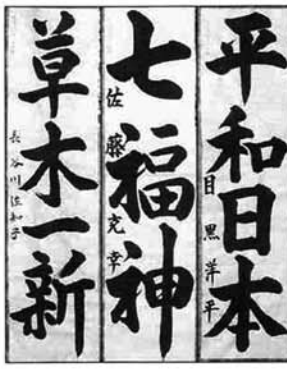 平和日本
目黒洋平
七福神
佐藤克幸
草木一新
長谷川佐知子